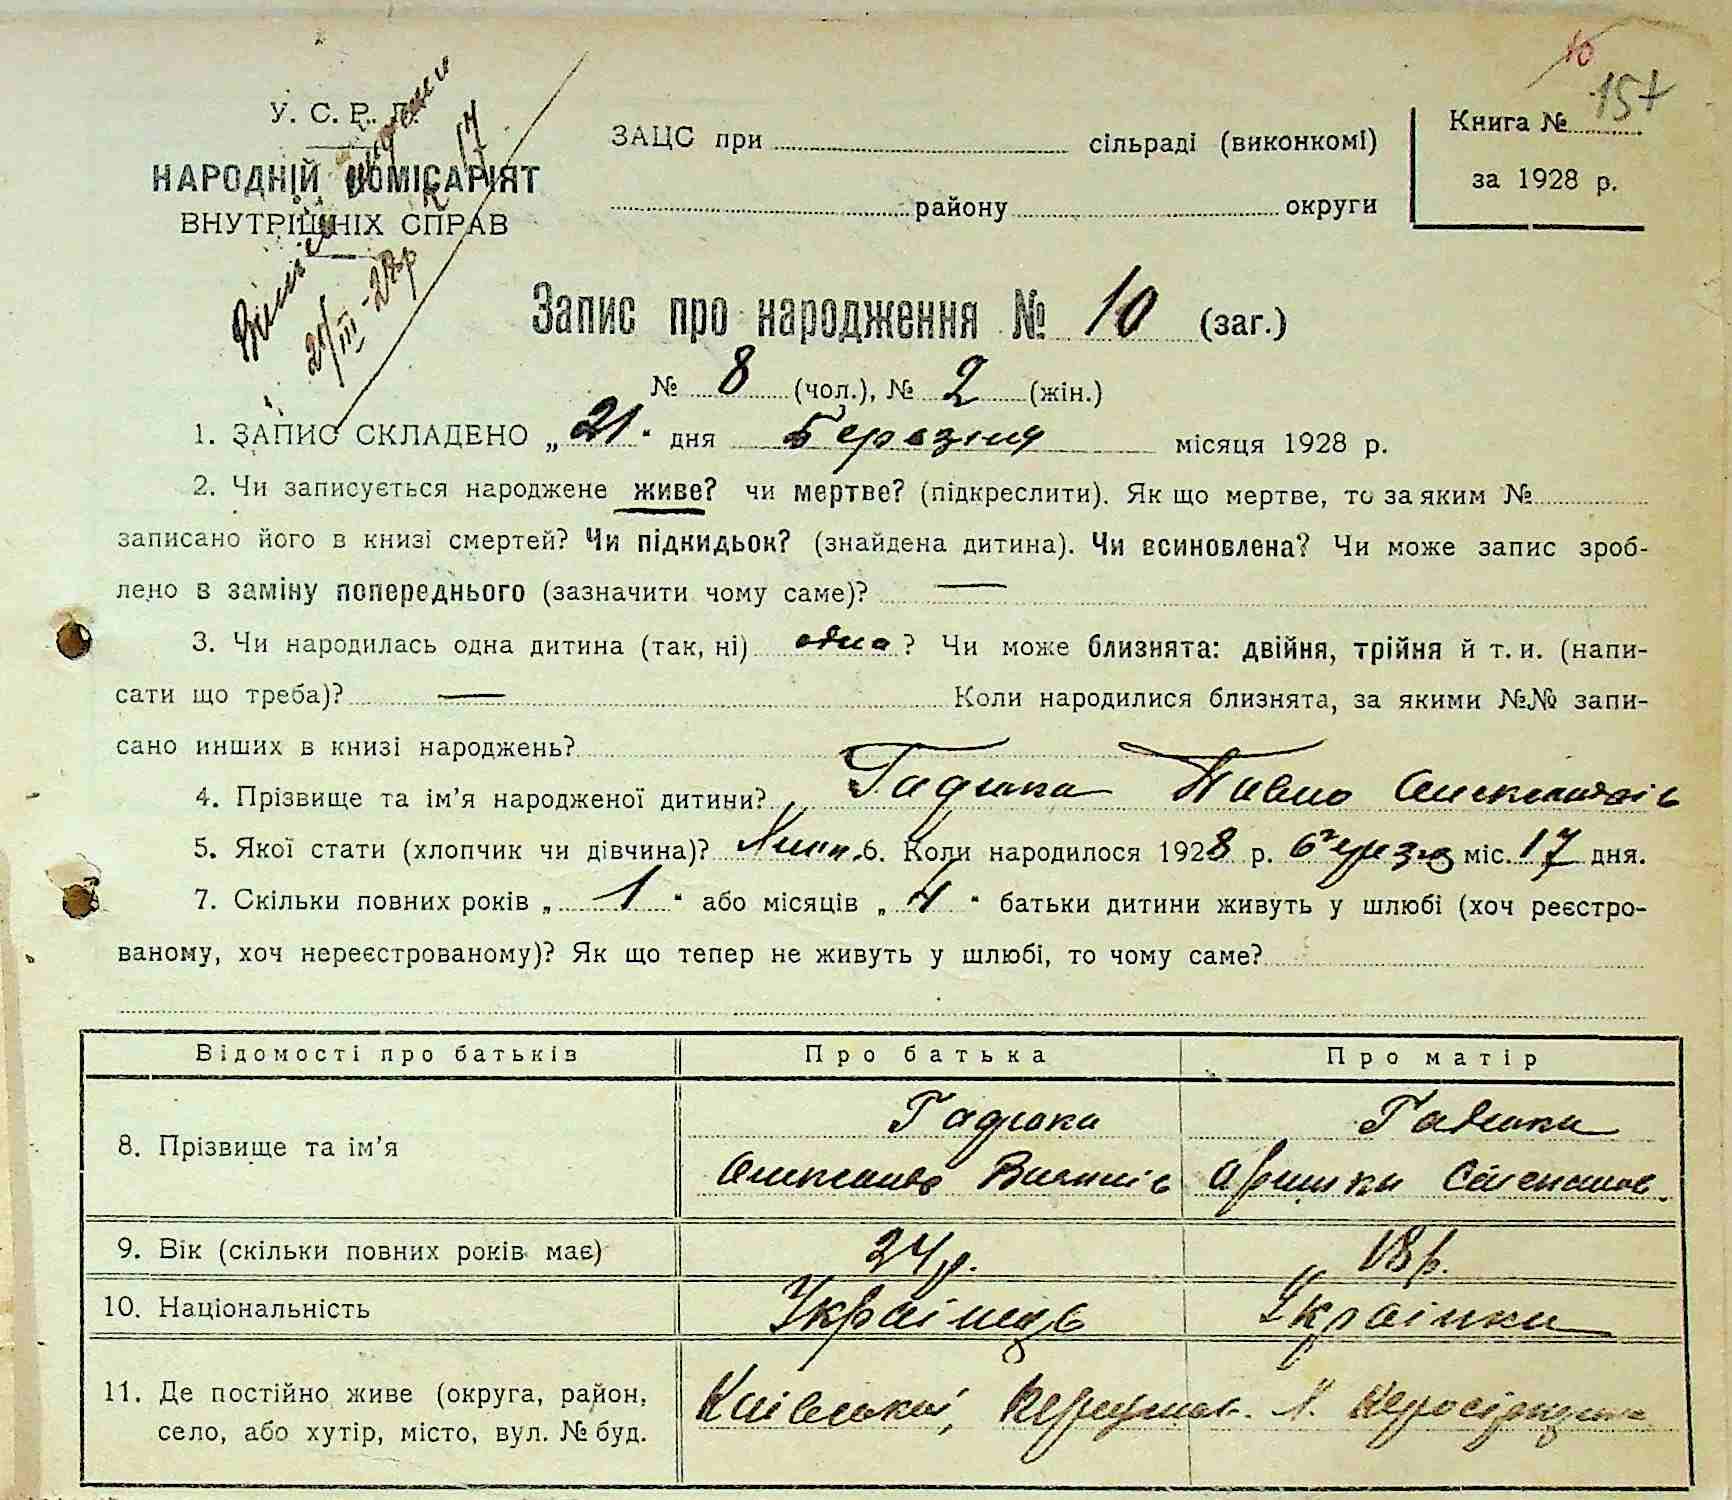 10
157
У. С. Р. Р.
НАРОДНІЙ КОМІСАРІЯТ
ВНУТРІШНІХ СПРАВ
21/III-28р
К 17
ЗАЦС при сільраді (виконкомі)
району округи
Книга №
за 1928 р.
Запис про народження № 10 (заг.)
№ 8 (чол.), № 2 (жін.)
1. ЗАПИС СКЛАДЕНО „ 21 “ дня Березня місяця 1928 р.
2. Чи записується народжене живе? чи мертве? (підкреслити). Як що мертве, то за яким №
записано його в книзі смертей? Чи підкидьок? (знайдена дитина). Чи всиновлена? Чи може запис зроб-
лено в заміну попереднього (зазначити чому саме)? —
3. Чи народилась одна дитина (так, ні) одна ? Чи може близнята: двійня, трійня й т. и. (напи-
сати що треба)? — Коли народилися близнята, за якими №№ запи-
сано инших в книзі народжень?
4. Прізвище та ім’я народженої дитини? Гадюка Павло Олександрів
5. Якої стати (хлопчик чи дівчина)? Хлоп. 6. Коли народилося 1928 р. березня міс. 17 дня.
7. Скільки повних років „ 1 “ або місяців „ 4 “ батьки дитини живуть у шлюбі (хоч реєстро-
ваному, хоч нереєстрованому)? Як що тепер не живуть у шлюбі, то чому саме?
Відомості про батьків Про батька Про матір
8. Прізвище та ім’я Гадюка Гадюка
Олександр Аришка
9. Вік (скільки повних років має) 24 р. 18 р.
10. Національність Українець Українка
11. Де постійно живе (округа, район,
село, або хутір, місто, вул. № буд.
Київської,